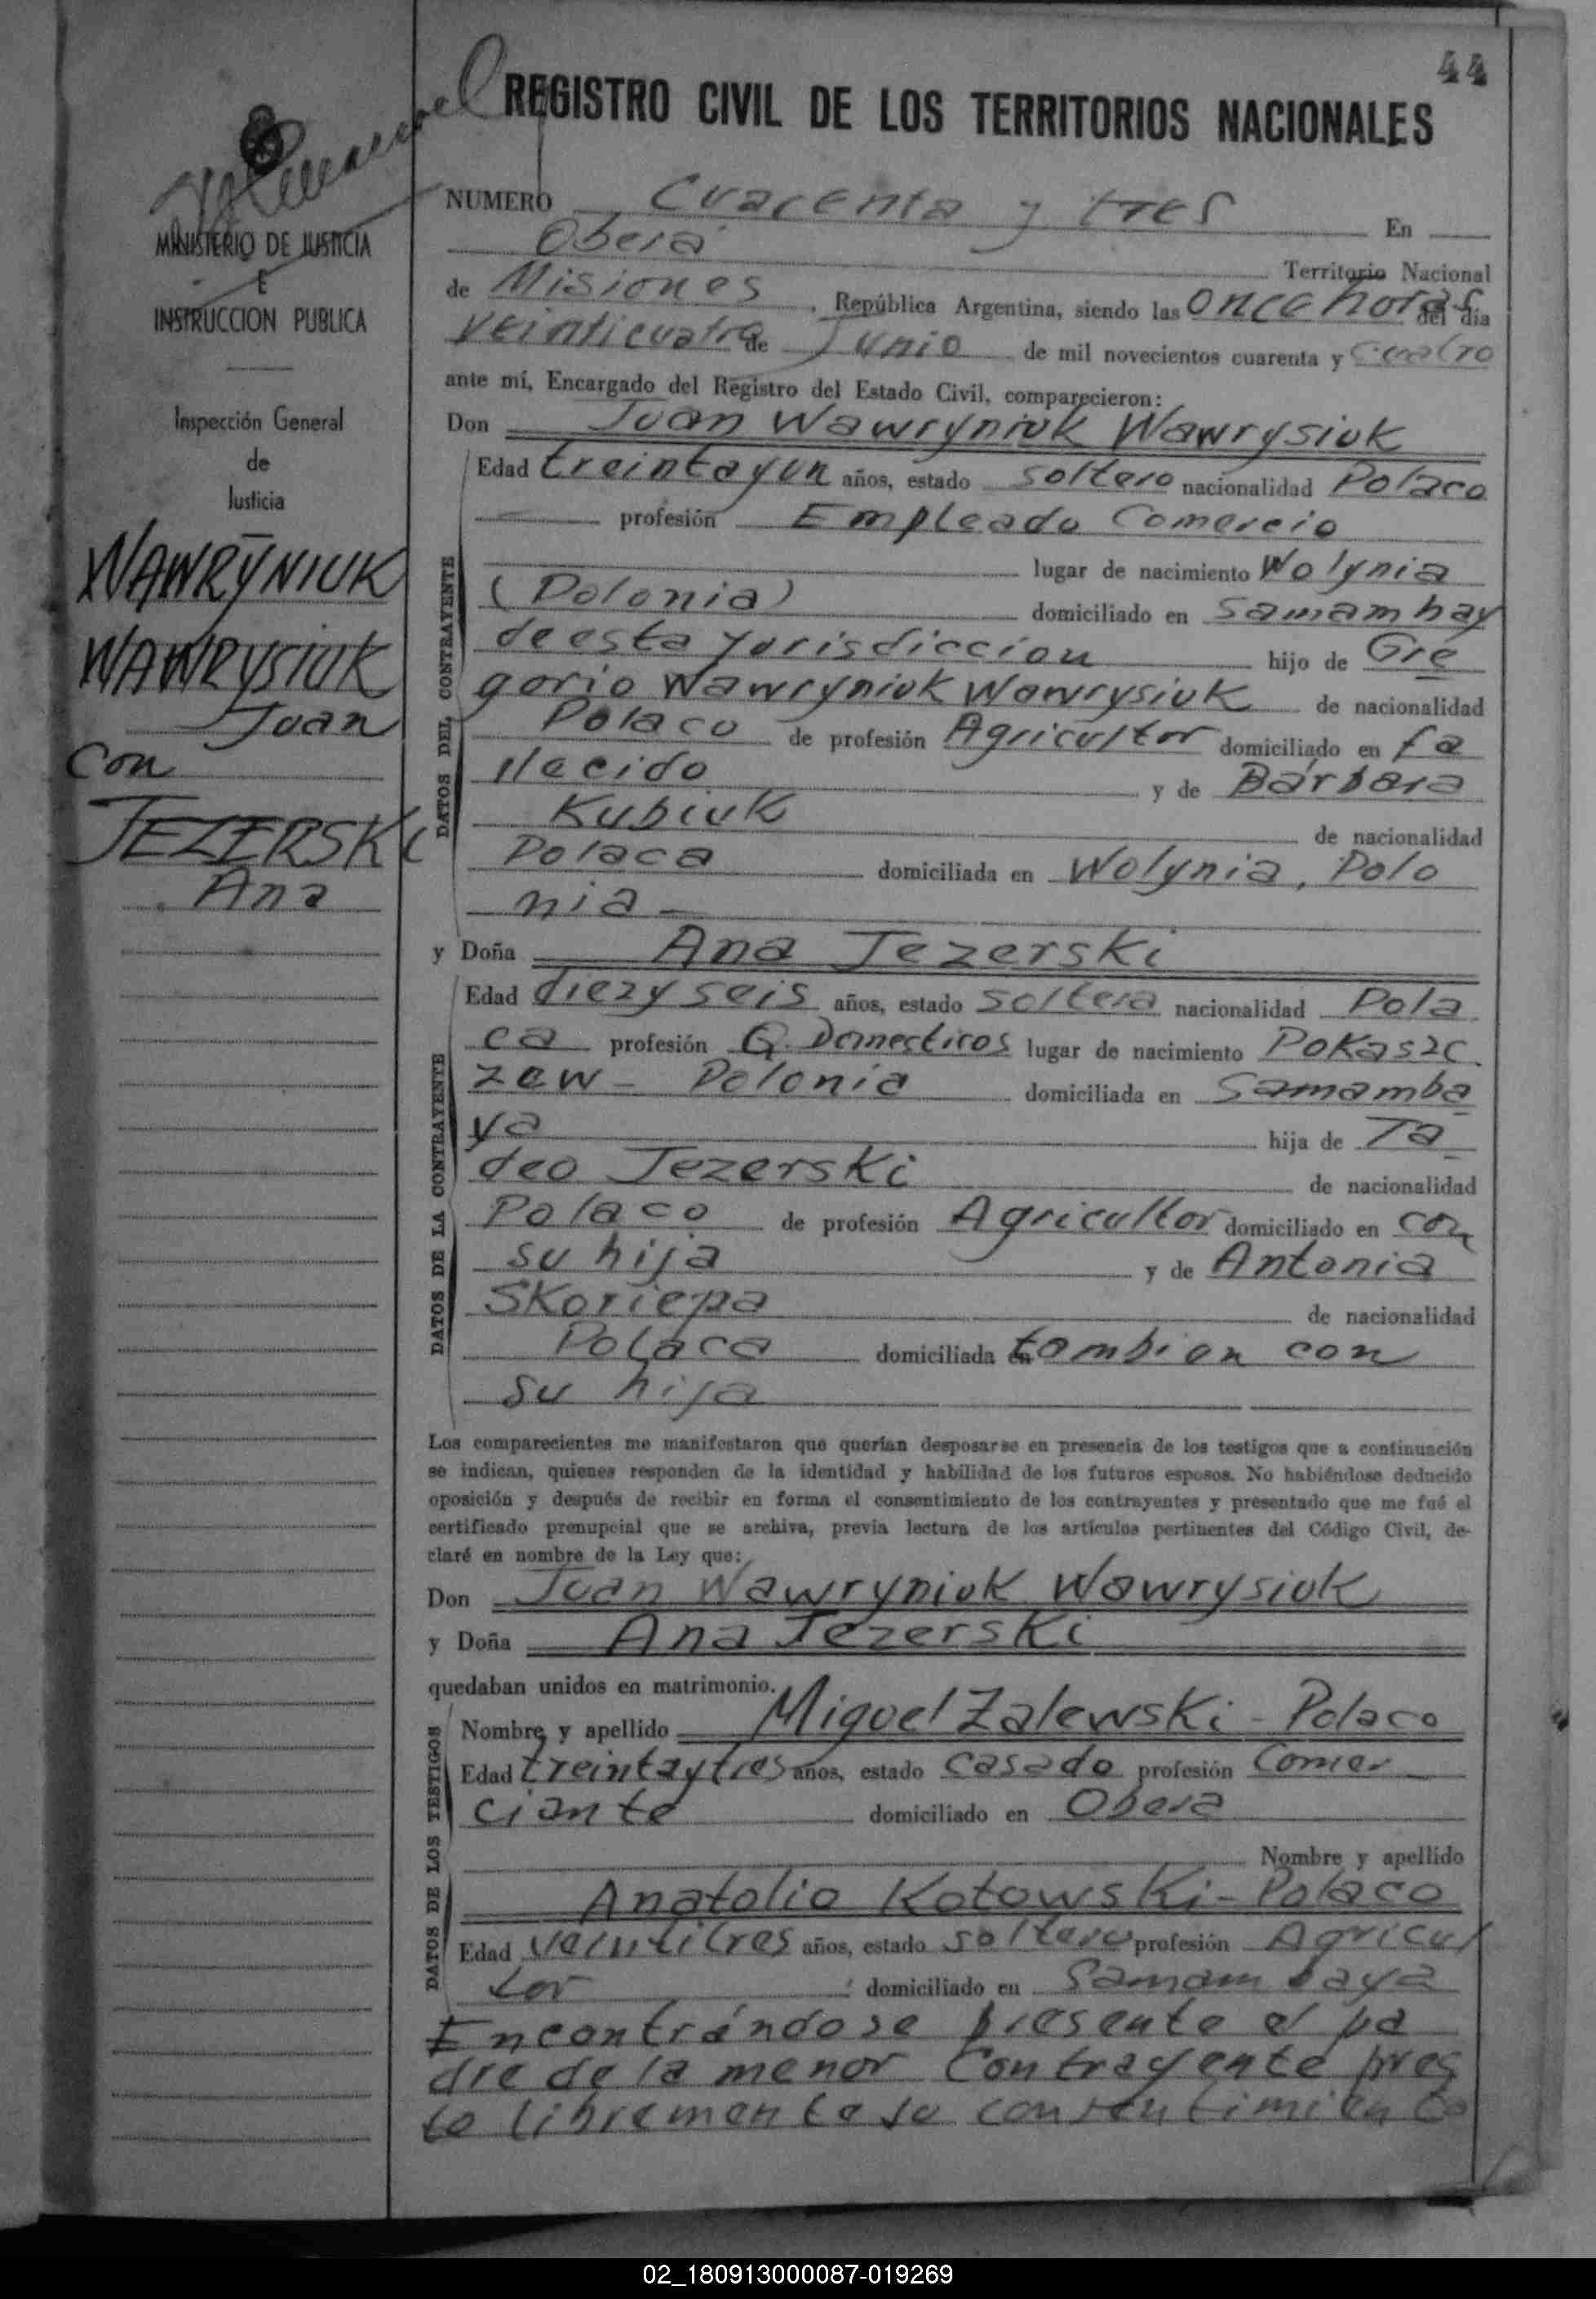 44
REGISTRO CIVIL DE LOS TERRITORIOS NACIONALES
MINISTERIO DE JUSTICIA
E
INSTRUCCION PUBLICA
Inspección General
de
Justicia
WAWRYNIUK
WAWRYSIUK
Juan
Con
JEZERSKI
Ana
NUMERO Cuarenta y tres En
Oberá Territorio Nacional
de Misiones, República Argentina, siendo las Once horas del día
Veinticuatro de Junio de mil novecientos cuarenta y Cuatro
ante mí, Encargado del Registro del Estado Civil, comparecieron:
Don Juan Wawryniuk Wawrysiuk
DATOS DEL CONTRAYENTE
Edad treintayun años, estado soltero nacionalidad Polaco
profesión Empleado Comercio
lugar de nacimiento Wolynia
(Polonia) domiciliado en Samambay
de esta Jurisdiccion hijo de Gre
gorio Wawryniuk Wawrysiuk de nacionalidad
Polaco de profesión Agricultor domiciliado en fa
llecido y de Bárbara
Kubiuk de nacionalidad
Polaca domiciliada en Wolynia, Polo
nia
y Doña Ana Jezerski
DATOS DE LA CONTRAYENTE
Edad diezy seis años, estado soltera nacionalidad Pola
ca profesión Q. Domesticos lugar de nacimiento Pokaszc
zew - Polonia domiciliada en Samamba
ya hija de Ta
deo Jezerski de nacionalidad
Polaco de profesión Agricultor domiciliado en con
su hija y de Antonia
Skoriepa de nacionalidad
Polaca domiciliada en tambien con
su hija
Los comparecientes me manifestaron que querían desposarse en presencia de los testigos que a continuación
se indican, quienes responden de la identidad y habilidad de los futuros esposos. No habiéndose deducido
oposición y después de recibir en forma el consentimiento de los contrayentes y presentado que me fué el
certificado prenupcial que se archiva, previa lectura de los artículos pertinentes del Código Civil, de-
claré en nombre de la Ley que:
Don Juan Wawryniuk Wawrysiuk
y Doña Ana Jezerski
quedaban unidos en matrimonio.
DATOS DE LOS TESTIGOS
Nombre y apellido Miguel Zalewski - Polaco
Edad treintaytres años, estado casado profesión Comer
ciante domiciliado en Obera
Nombre y apellido
Anatolio Kotowski - Polaco
Edad veintitres años, estado soltero profesión Agricul
tor domiciliado en Samambaya
Encontrándose presente el pa
dre de la menor Contrayente pres
to libremente su consentimiento
02_180913000087-019269